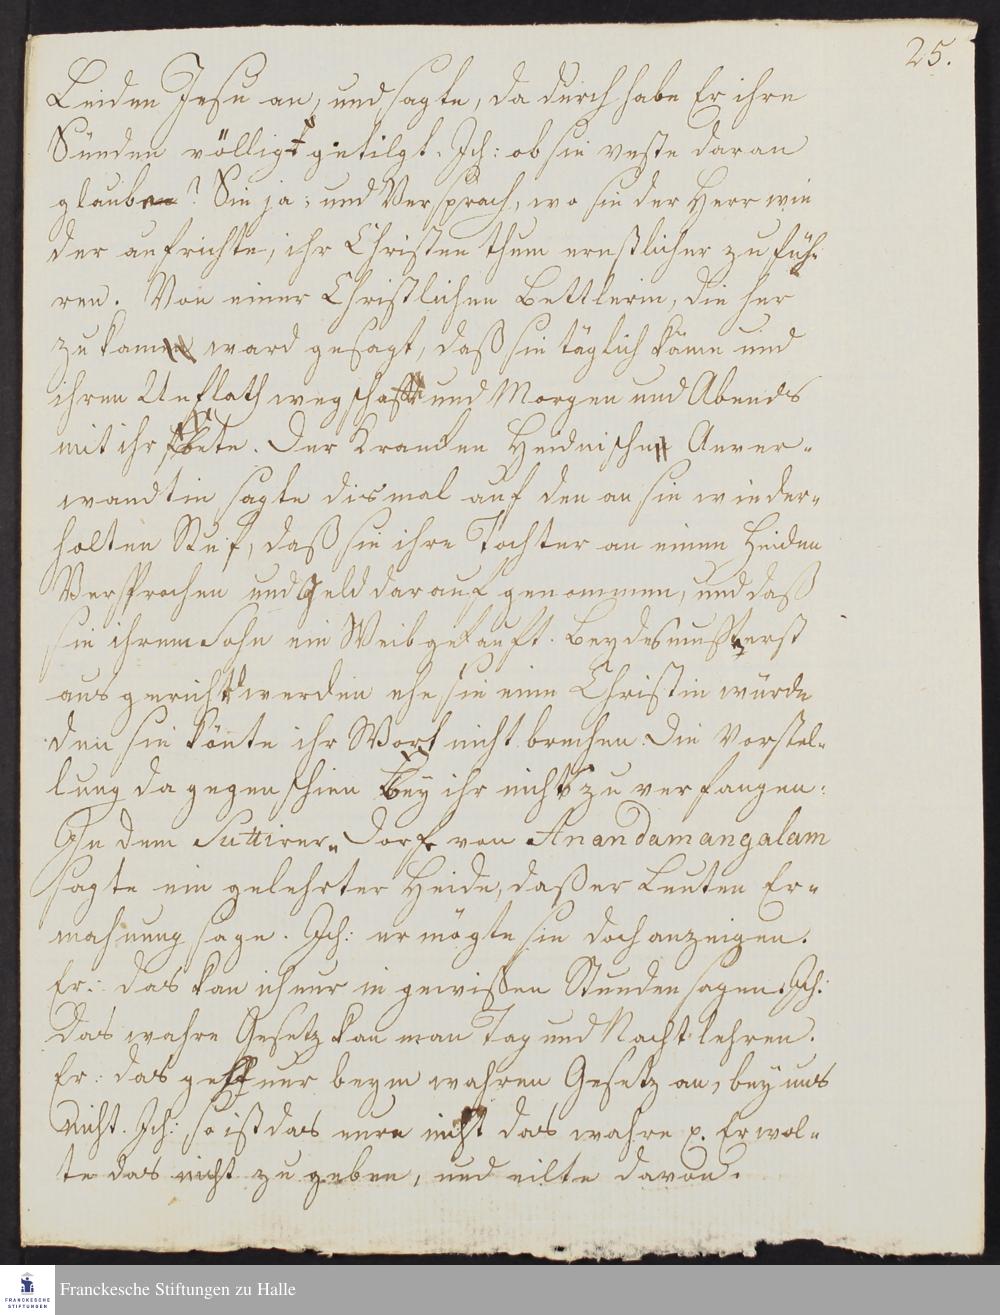 25.
Leiden Jesu an, und sagte, da durch habe Er ihre
Sünden völlig getilgt. Ich: ob sie veste daran
glaube? Sie ja; und Versprach, wo sie der Herr wie
der aufrichte, ihr Christen thum ernstlicher zu füh-
ren. Von einer Christlichen Bettlerin, die her
zu kam ward gesagt, daß sie täglich käme und
ihren Unflath wegschaffe und Morgen und Abends
mit ihr bete. Der Krancken Heidnische Anver-
wandtin sagte dismal auf den an sie wieder-
holten Ruf, daß sie ihre Tochter an einen Heiden
Versprochen und Geld darauf genommen, und daß
sie ihrem Sohn ein Weib gekauft. Beydes müste erst
aus gericht werden ehe sie eine Christin würde
den sie könte ihr Wort nicht brechen. Die Vorstel-
lung da gegen schien bey ihr nichts zu verfangen.
In dem Suttirer-Dorf von Anandamangalam
sagte ein gelehrter Heide, daß er Leuten Er-
mahnung sage. Ich: er mögte sie doch anzeigen.
Er: das kan ich nur in gewißen Stunden sagen. Ich:
Das wahre Gesetz kan man Tag und Nacht lehren.
Er: das geht nur beym wahren Gesetz an, bey uns
nicht. Ich: so ist das eure nicht das wahre p. Er wol-
te das nicht zu geben, und eilte davon.
FRANCKESCHE
STIFTUNGEN
Franckesche Stiftungen zu Halle